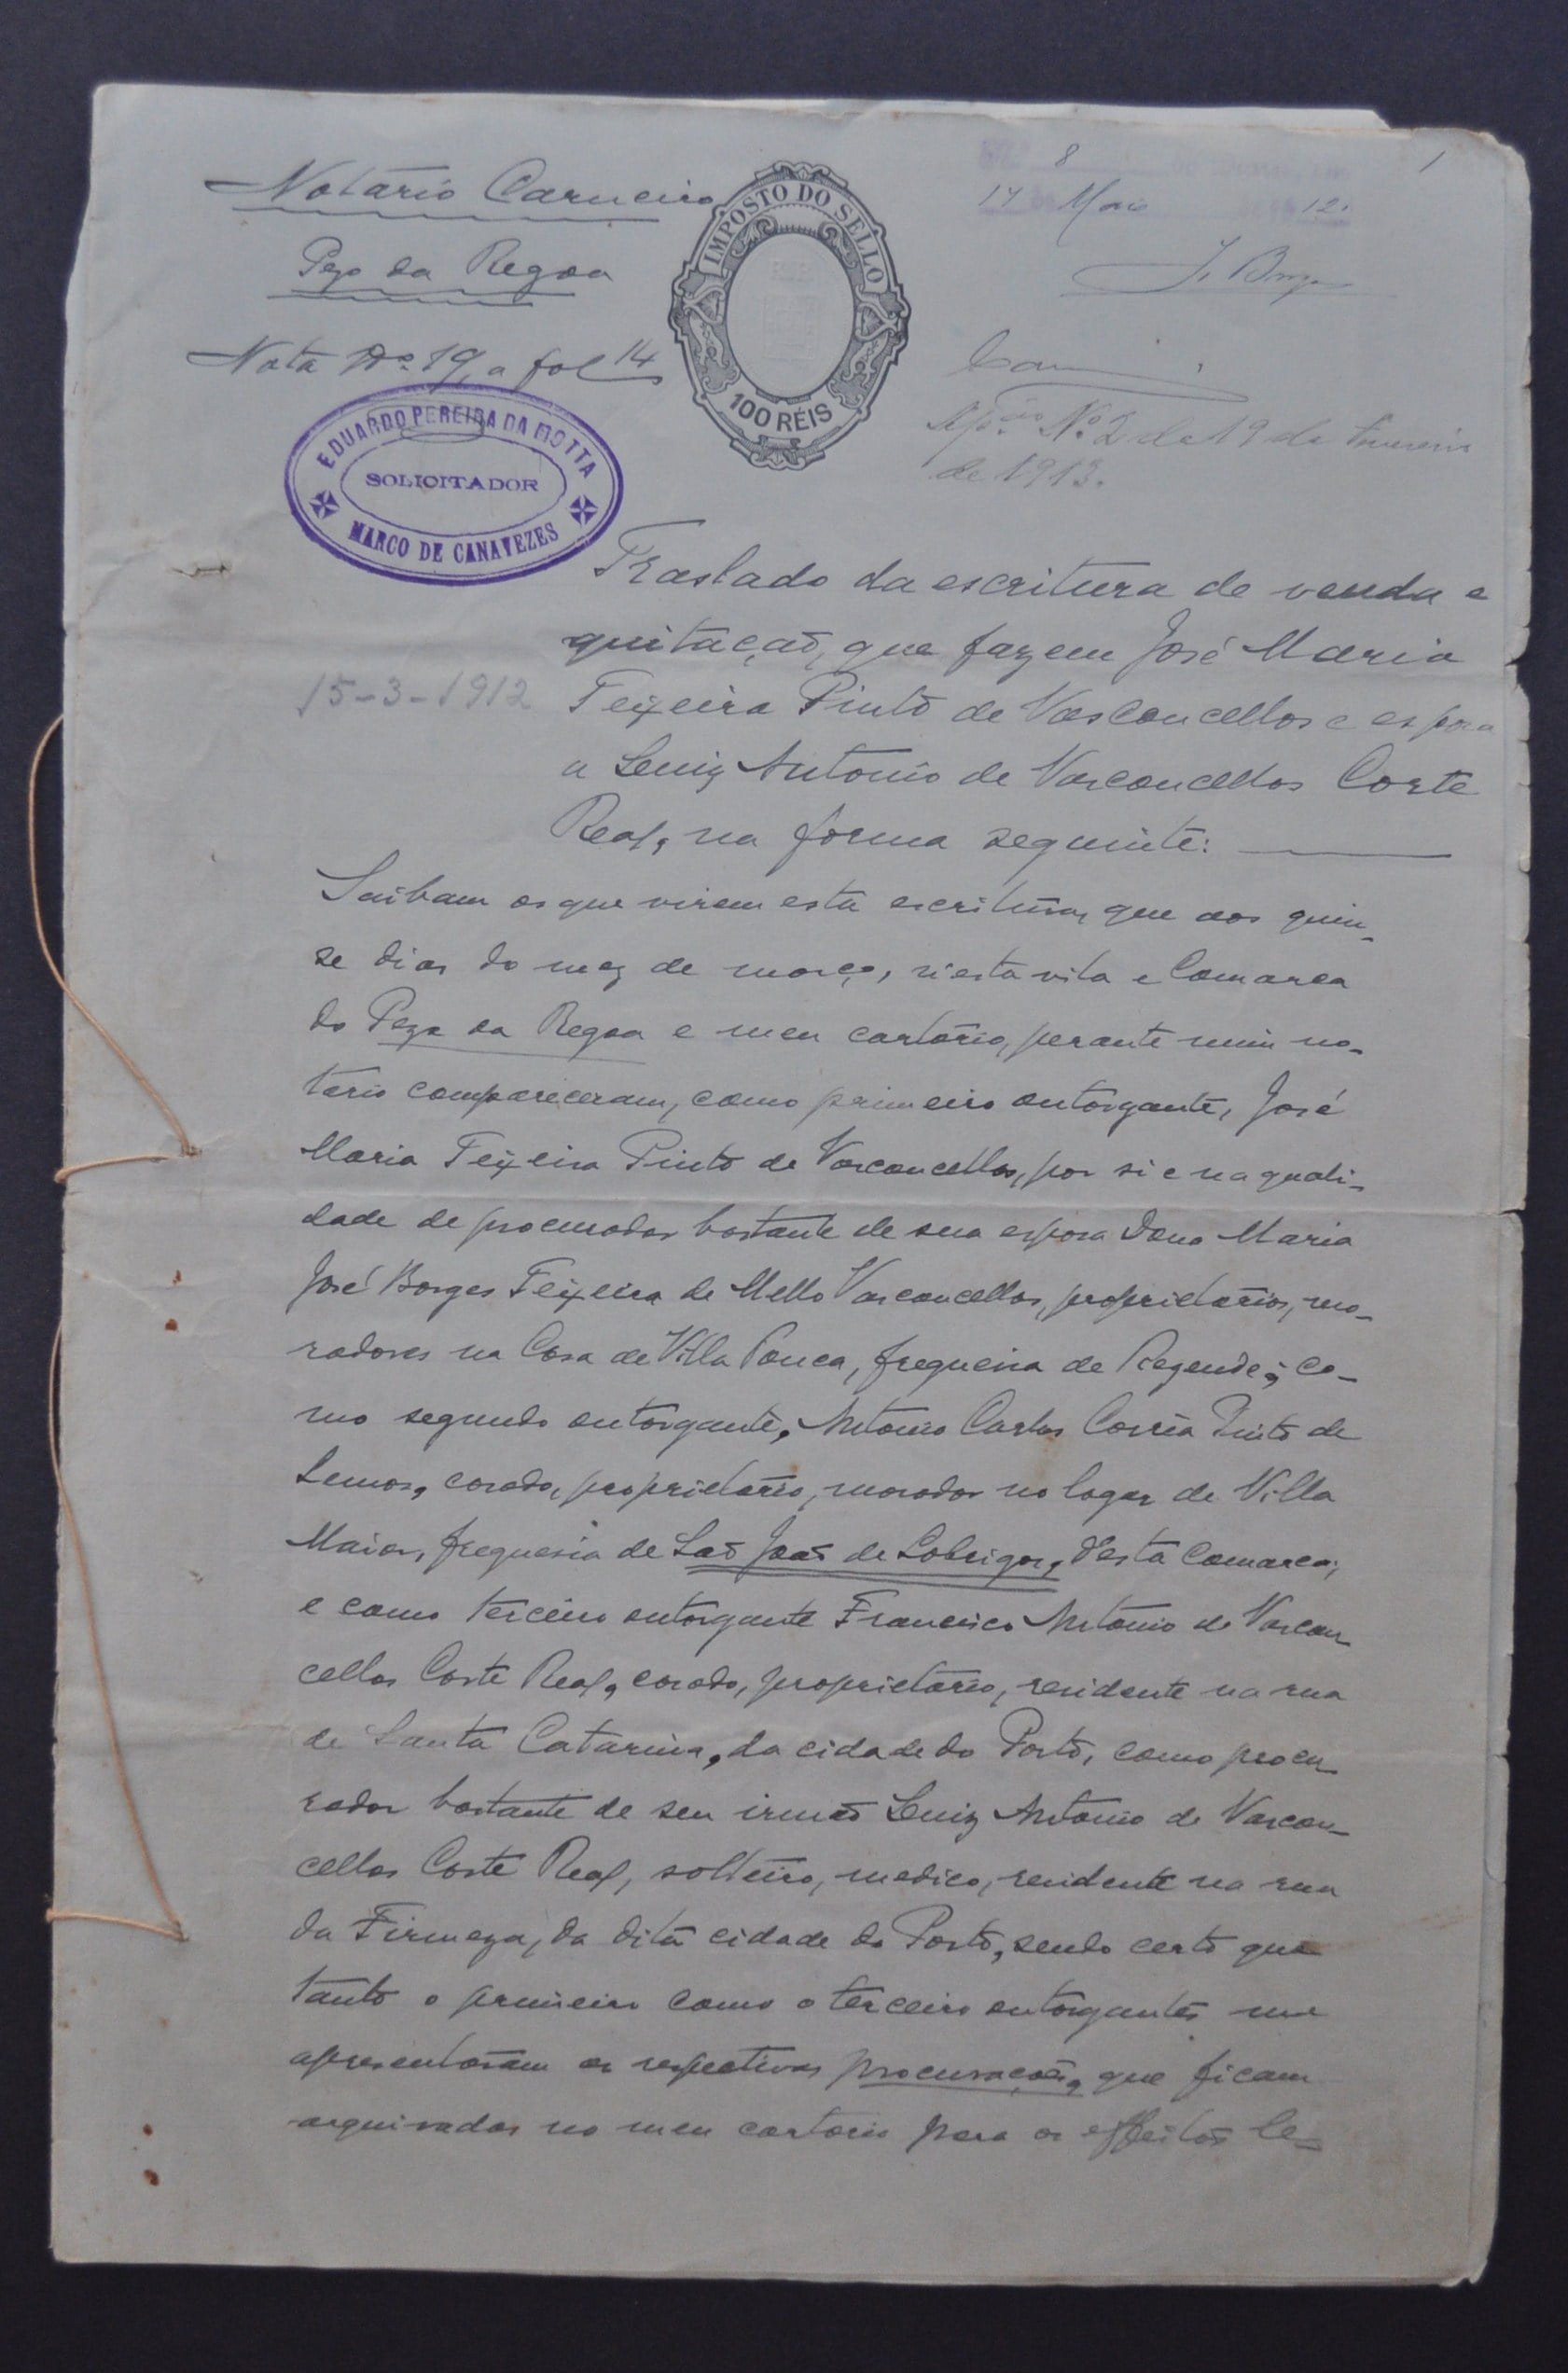 Notario Carneiro
Pezo da Regoa
Nota Nº 19, a fol 14
IMPOSTO DO SELLO
100 RÉIS
8
17 Maio 12.
1
Nº 2 de 19 de
de 1913.
EDUARDO PEREIRA DA MOTTA
SOLICITADOR
MARCO DE CANAVEZES
15-3-1912
Traslado da escritura de venda e
quitação, que fazem José Maria
Teixeira Pinto de Vasconcellos e espoza
a Luiz Antonio de Vasconcellos Corte
Real, na forma seguinte:
Saibam os que virem esta escritura, que aos quin-
se dias do mez de março, n'esta vila e Comarca
do Pezo da Regoa e meu cartorio, perante mim no-
tario compareceram, como primeiro outorgante, José
Maria Teixeira Pinto de Vasconcellos, por si e na quali-
dade de procurador bastante de sua esposa Dona Maria
José Borges Teixeira de Mello Vasconcellos, proprietarios, mo-
radores na Casa de Villa Pouca, freguezia de Rezende; co-
mo segundo outorgante, Antonio Carlos Corrêa Pinto de
Lemos, casado, proprietario, morador no logar de Villa
Maior, freguesia de São João de Lobrigos, d'esta Comarca;
e como terceiro outorgante Francisco Antonio de Vascon-
cellos Corte Real, casado, proprietario, residente na rua
de Santa Catarina, da cidade do Porto, como procu-
rador bastante de seu irmão Luiz Antonio de Vascon-
cellos Corte Real, solteiro, medico, residente na rua
da Firmeza, da dita cidade do Porto, sendo certo que
tanto o primeiro como o terceiro outorgantes me
apresentaram as respectivas procurações, que ficam
arquivadas no meu cartorio para os effeitos le-